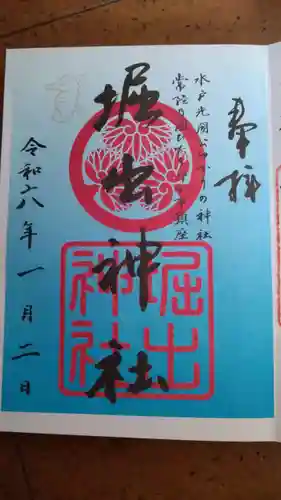 奉拝
水戸光圀公ゆかりの神社
常陸のひたちなか市鎮座
堀出神社
堀出神社
令和六年一月二日